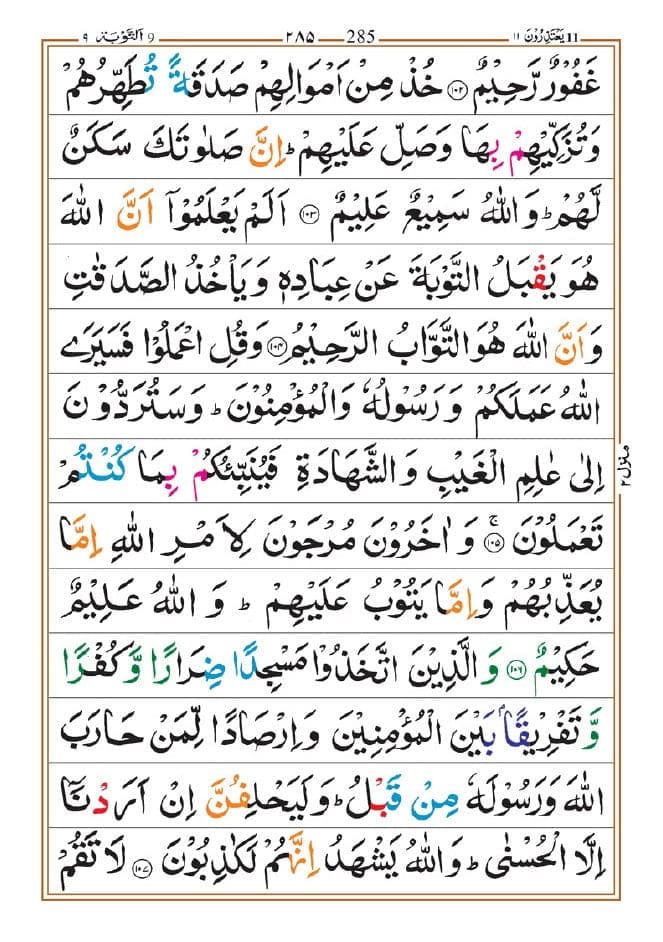 ٩ اَلتَّوْبَة 9 ٢٨٥ 285 11 يَعْتَذِرُوْنَ ١١
غَفُوْرٌ رَّحِيْمٌ ﴿١٠٢﴾ خُذْ مِنْ اَمْوَالِهِمْ صَدَقَةً تُطَهِّرُهُمْ
وَتُزَكِّيْهِمْ بِهَا وَصَلِّ عَلَيْهِمْ ؕ اِنَّ صَلٰوتَكَ سَكَنٌ
لَّهُمْ ؕ وَاللّٰهُ سَمِيْعٌ عَلِيْمٌ ﴿١٠٣﴾ اَلَمْ يَعْلَمُوْۤا اَنَّ اللّٰهَ
هُوَ يَقْبَلُ التَّوْبَةَ عَنْ عِبَادِهٖ وَيَاْخُذُ الصَّدَقٰتِ
وَاَنَّ اللّٰهَ هُوَ التَّوَّابُ الرَّحِيْمُ ﴿١٠٤﴾ وَقُلِ اعْمَلُوْا فَسَيَرَے
اللّٰهُ عَمَلَكُمْ وَرَسُوْلُهٗ وَالْمُؤْمِنُوْنَ ؕ وَسَتُرَدُّوْنَ
اِلٰى عٰلِمِ الْغَيْبِ وَالشَّهَادَةِ فَيُنَبِّئُكُمْ بِمَا كُنْتُمْ
تَعْمَلُوْنَ ۚ ﴿١٠٥﴾ وَاٰخَرُوْنَ مُرْجَوْنَ لِاَمْرِ اللّٰهِ اِمَّا
يُعَذِّبُهُمْ وَاِمَّا يَتُوْبُ عَلَيْهِمْ ؕ وَاللّٰهُ عَلِيْمٌ
حَكِيْمٌ ﴿١٠٦﴾ وَالَّذِيْنَ اتَّخَذُوْا مَسْجِدًا ضِرَارًا وَّكُفْرًا
وَّتَفْرِيْقًۢا بَيْنَ الْمُؤْمِنِيْنَ وَاِرْصَادًا لِّمَنْ حَارَبَ
اللّٰهَ وَرَسُوْلَهٗ مِنْ قَبْلُ ؕ وَلَيَحْلِفُنَّ اِنْ اَرَدْنَاۤ
اِلَّا الْحُسْنٰى ؕ وَاللّٰهُ يَشْهَدُ اِنَّهُمْ لَكٰذِبُوْنَ ﴿١٠٧﴾ لَا تَقُمْ
منزل ٢